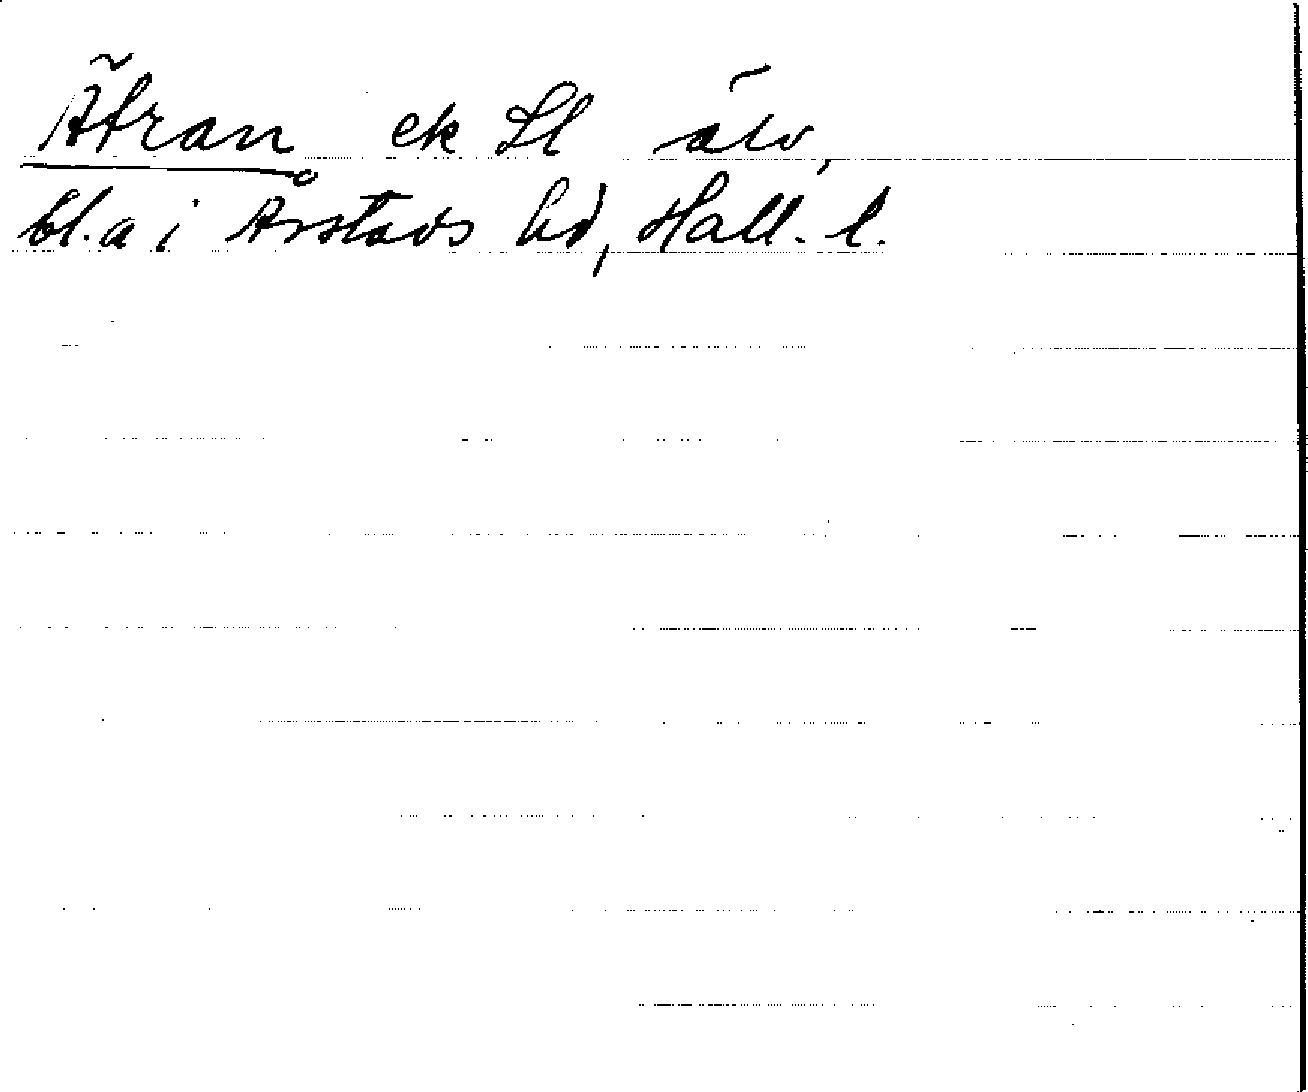 Ätran ek Sl älv,
bl.a i Årstads hd, Hall. l.